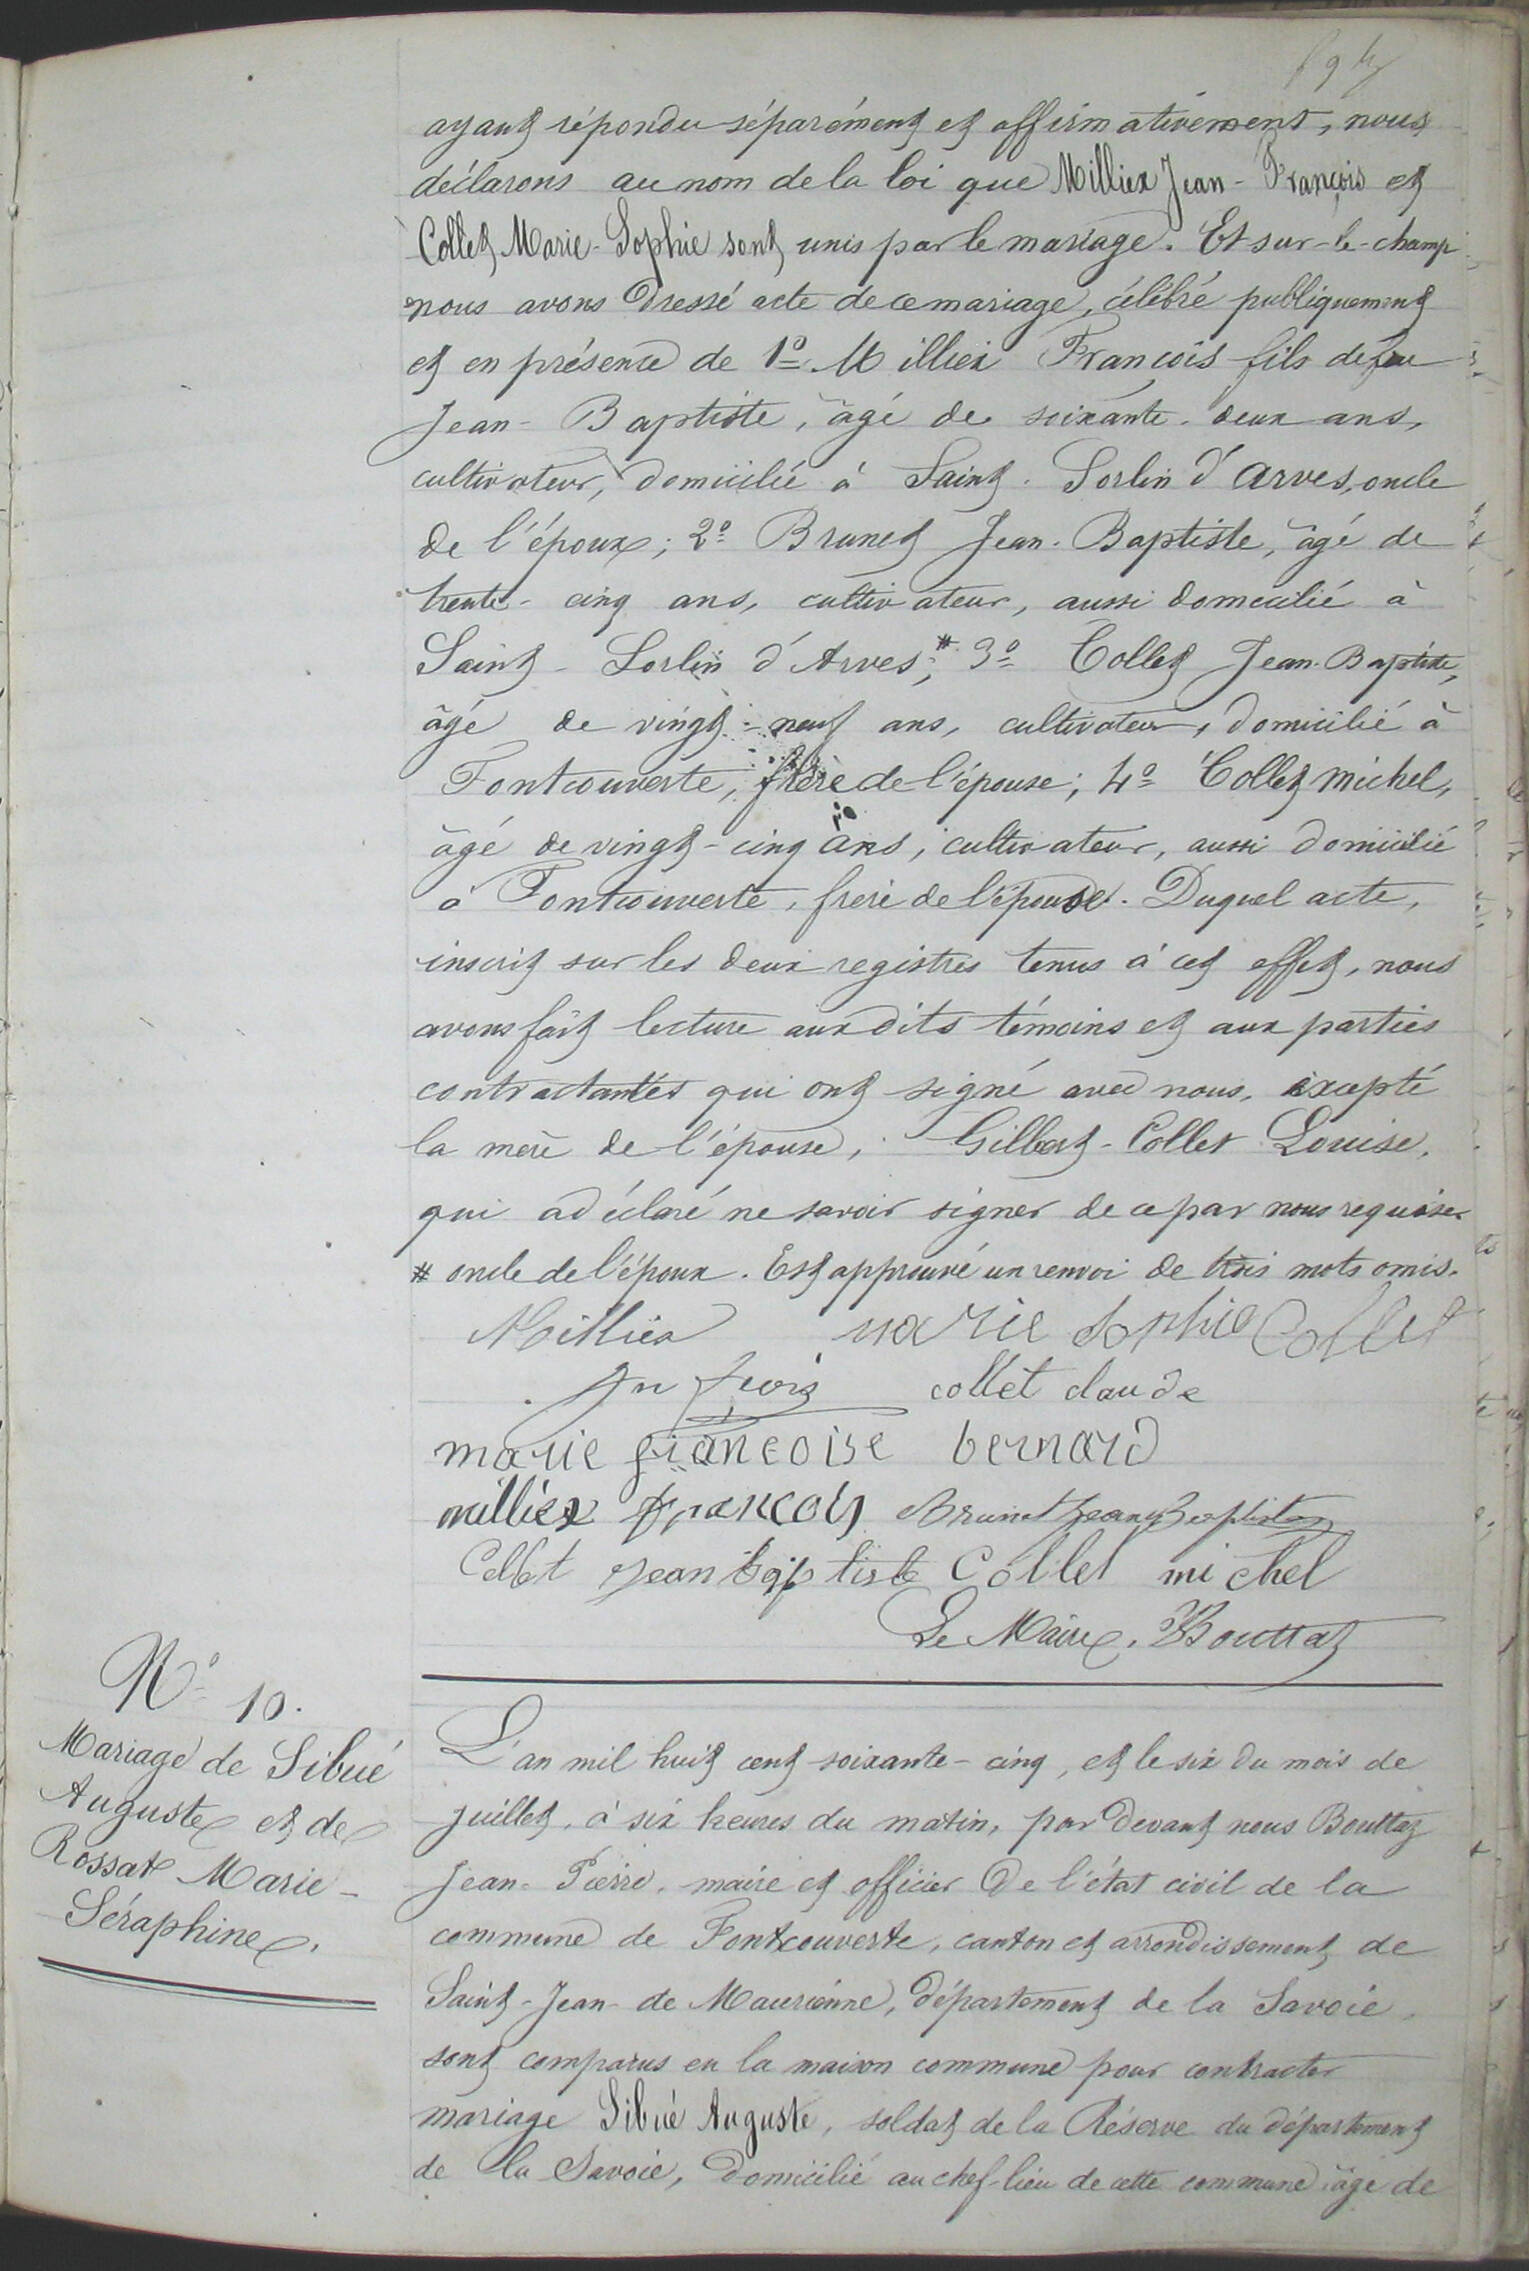 ayant répondu séparément et affirmativement, nous
déclarons au nom de la loi que Milliex Jean-François et
Collet Marie-Sophie sont unis par le mariage. Et sur-le-champ
nous avons dressé acte de ce mariage, célébré publiquement
et en présence de 1º Milliex François fils de feu
Jean-Baptiste, âgé de soixante-deux ans,
cultivateur, domicilié à Saint-Sorlin d'Arves, oncle
de l'époux; 2º Brunet Jean-Baptiste, âgé de
trente-cinq ans, cultivateur, aussi domicilié à
Saint-Sorlin d'Arves,# 3º Collet Jean-Baptiste,
âgé de vingt-neuf ans, cultivateur, domicilié à
Fontcouverte, frère de l'épouse; 4º Collet Michel,
âgé de vingt-cinq ans, cultivateur, aussi domicilié
à Fontcouverte, frère de l'épouse. Duquel acte,
inscrit sur les deux registres tenus à cet effet, nous
avons fait lecture aux dits témoins et aux parties
contractantes qui ont signé avec nous, excepté
la mère de l'épouse, Gilbert-Collet Louise,
qui a déclaré ne savoir signer de ce par nous requise
# oncle de l'époux. Est approuvé un renvoi de trois mots omis.
Milliex marie Sophie Collet
Jn frois collet claude
marie francoise bernard
milliex francois Brunet Jean Baptiste
Collet jean baptiste Collet michel
Le Maire, Bouttaz
Nº 10.
Mariage de Sibué
Auguste et de
Rossat Marie-
Séraphine.
L'an mil huit cent soixante-cinq, et le six du mois de
juillet, à six heures du matin, par devant nous Bouttaz
Jean-Pierre, maire et officier de l'état civil de la
commune de Fontcouverte, canton et arrondissement de
Saint-Jean-de Maurienne, département de la Savoie,
sont comparus en la maison commune pour contracter
mariage Sibué Auguste, soldat de la Réserve du département
de la Savoie, domicilié au chef-lieu de cette commune âgé de